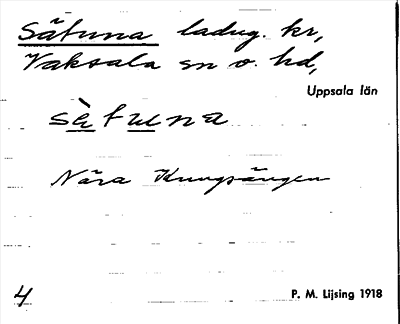 Sätuna ladug. kr,
Vaksala sn o. hd,
Uppsala län
sè̀tuna
Nära Kungsängen
4
P. M. Lijsing 1918